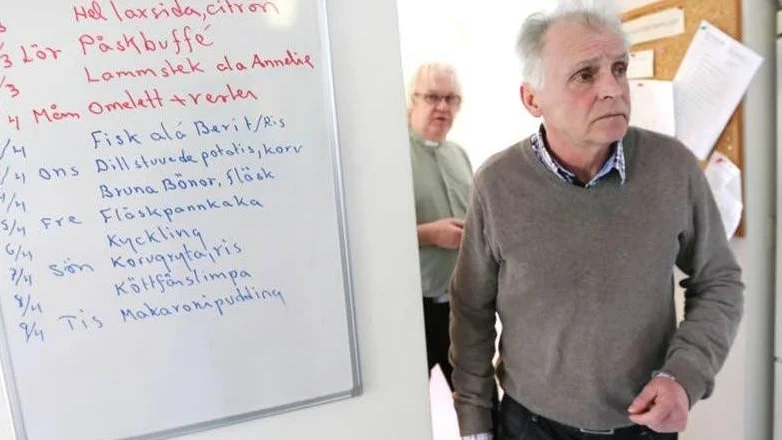 Hel laxsida, citron
/3 Lör Påskbuffé
/3 Lammstek ala Annelie
4 Mån Omelett + rester
/4 Fisk alá Berit/Ris
/4 Ons Dillstuvade potatis, korv
4/4 Bruna Bönor, Fläsk
5/4 Fre Fläskpannkaka
6/4 Kyckling
7/4 Sön Korvgryta, ris
8/4 Köttfärslimpa
9/4 Tis Makaronipudding